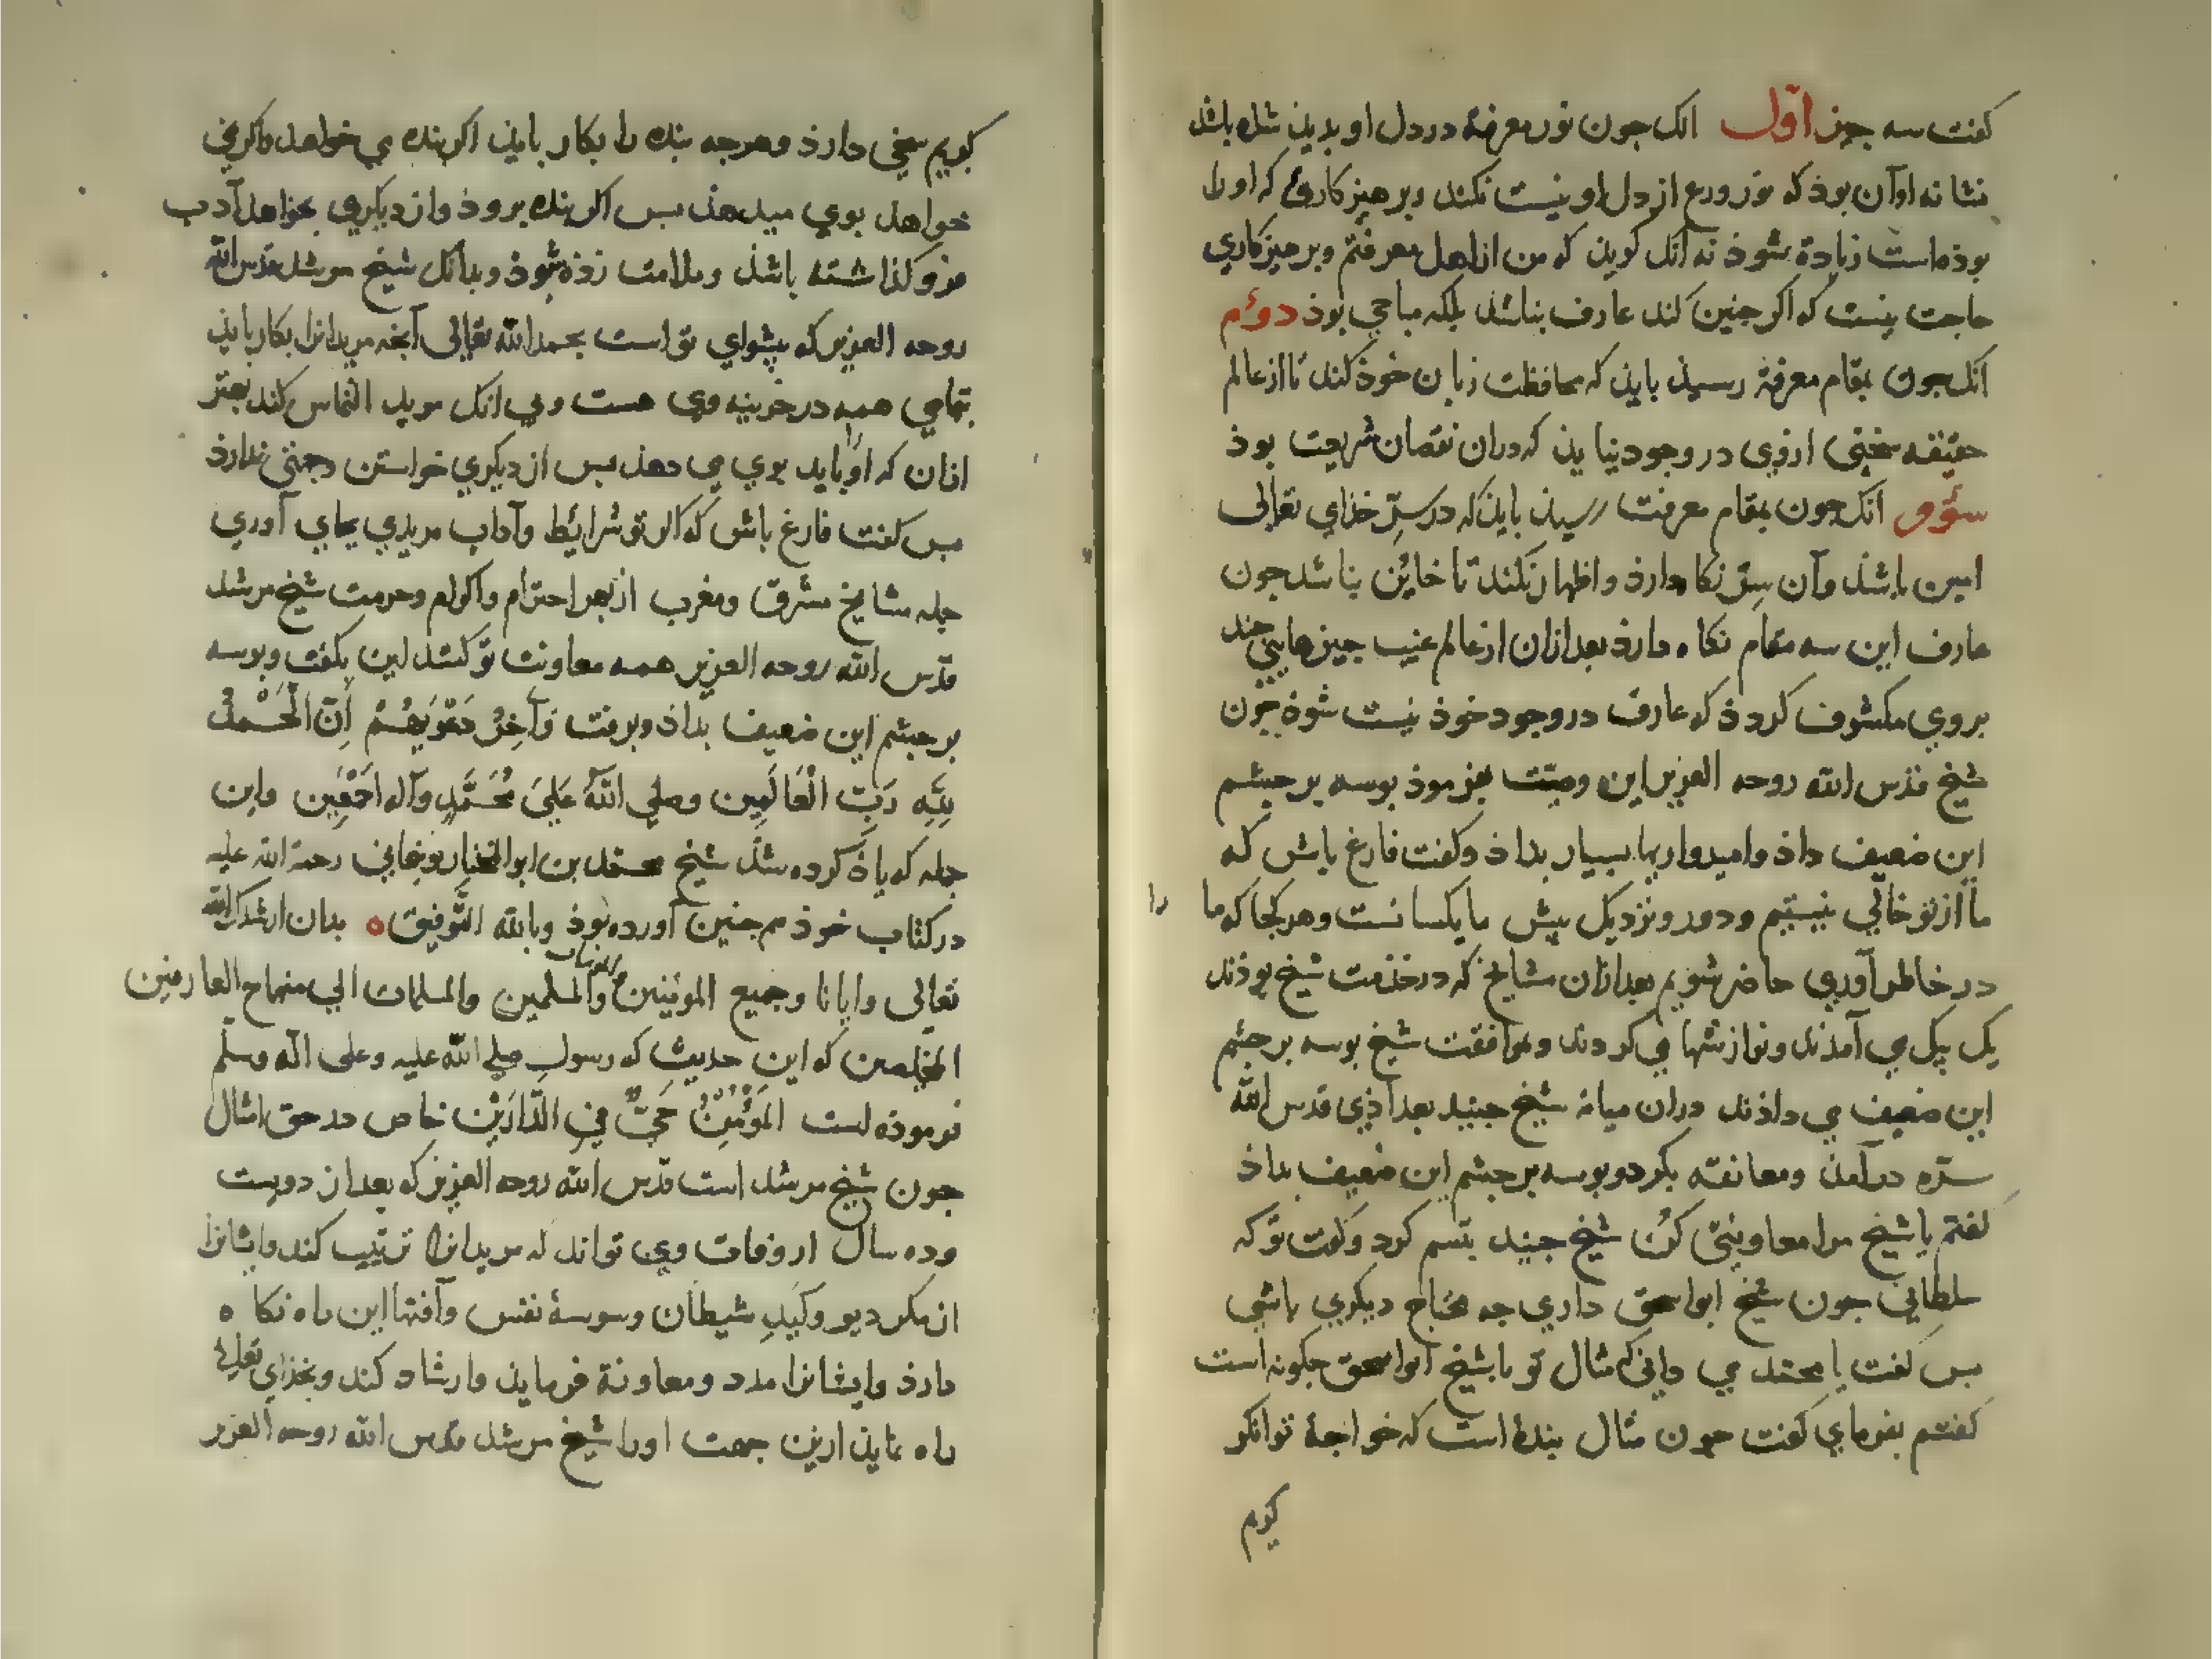 كفت سه جيز اوّل انک جون نور معرفة در دل او بديذ شذه باشذ
نشانه او آن بوذ که نور ورع از دل او نيست نکند وبرهيزکاري که او را
بوذه است زيادة شوذ نه آنک کويذ که من از اهل معرفتم وبرهيزکاري
حاجت نيست که اکر جنين کند عارف نباشذ بلکه مباحي بوذ دوم
انک جون بمقام معرفة رسيذ بايذ که محافظت زبان خوذ کند تا از عالم
حقيقه سخني ازوي در وجود نيايذ که دران نقصان شريعت بوذ
سوم انک جون بمقام معرفت رسيذ بايذ که در سِرّ خذاي تعالى
امين باشذ وآن سِرّ نکا دارذ واظهار نکند تا خاين نباشد جون
عارف اين سه مقام نکاه دارذ بعد ازان از عالم غيب جيزهايي جند
بروي مکشوف کردذ که عارف در وجود خوذ نيست شوذ جون
شيخ قدس الله روحه العزيز اين وصيّت بفرموذ بوسه بر جشم
اين ضعيف داذ واميدواريها بسيار بداذ وکفت فارغ باش که
ما از تو خالي نيستيم ودور ونزديک بيش ما يکسانست وهر کجا که ما را
در خاطر آوري حاضر شويم بعد ازان مشايخ که در خذمت شيخ بوذند
يک بيک مي آمذند ونوازشها مي کردند وموافقت شيخ بوسه بر جشم
اين ضعيف مي داذند دران ميانه شيخ جنيد بغداذي قدس الله
سرّه درآمذ ومعانقه بکرد وبوسه بر جشم اين ضعيف بداذ
کفتم يا شيخ مرا معاونتي کن شيخ جنيد تبسم کرد وکفت تو که
سلطاني جون شيخ ابواسحق داري جه محتاج ديکري باشي
بس کفت يا محمد مي داني که مثال تو با شيخ ابواسحق جکونه است
کفتم بفرماي کفت جون مثال بندۀ است که خواجۀ توانکر
کويم
کويم سخي دارذ وهرجه بنده را بکار بايذ اکر بنده مي خواهد واکر نمي
خواهد بوي ميدهذ بس اکر بنده بروذ واز ديکري بخواهد آدب
فرو کذاشته باشذ وملامت زذه شوذ وبدانک شيخ مرشد قدس الله
روحه العزيز که بيشواي تو است بحمد الله تعالى آنجه مريدانرا بکار بايذ
بتمامي همه در خزينه وي هست وبي انک مريد التماس کند بهتر
ازان که او را بايد بوي مي دهذ بس از ديکري خواستن وجهي ندارذ
بس کفت فارغ باش که اکر تو شرايط وآداب مريذي بجاي آوري
جمله مشايخ مشرق ومغرب از بهر احترام واکرام وحرمت شيخ مرشد
قدس الله روحه العزيز همه معاونت تو کنند اين بکفت وبوسه
بر جشم اين ضعيف بداذ وبرفت وَآخِرُ دَعْوَيهُمْ أَنِ الْحَمْدُ
لِلَّهِ رَبِّ الْعَالَمِين وصلي اللهُ عَلَىَ مُحَمَّدٍ وآله اَجْمَعِين واين
جمله که ياذ کرده شذ شيخ محمد بن ابو المختار نوبنجاني رحمة الله عليه
در کتاب خوذ همجنين آورده بوذ وبالله التَّوفيق ه بدان ارشدک الله
تعالى وايانا وجميع المومنين والمومنات والمسلمين والمسلمات الي منهاج العارفين
المخلصين که اين حديث که رسول صلي الله عليه وعلى اله وسلم
فرموذه است المُؤْمِنُ حَيٌّ فِي الدَّارَيْن خاص در حق امثال
جون شيخ مرشد است قدس الله روحه العزيز که بعد از دويست
وده سال از وفات وي تواند که مريدانرا تربيت کند وايشانرا
از مکر ديو وکَيدِ شيطان ووسوسۀ نفس وآفتها اين راه نکاه
دارذ وايشانرا مدد ومعاونة فرمايذ وارشاد کند وبخذاي تعالى
راه نمايذ ازين جهت اورا شيخ مرشد قدس الله روحه العزيز